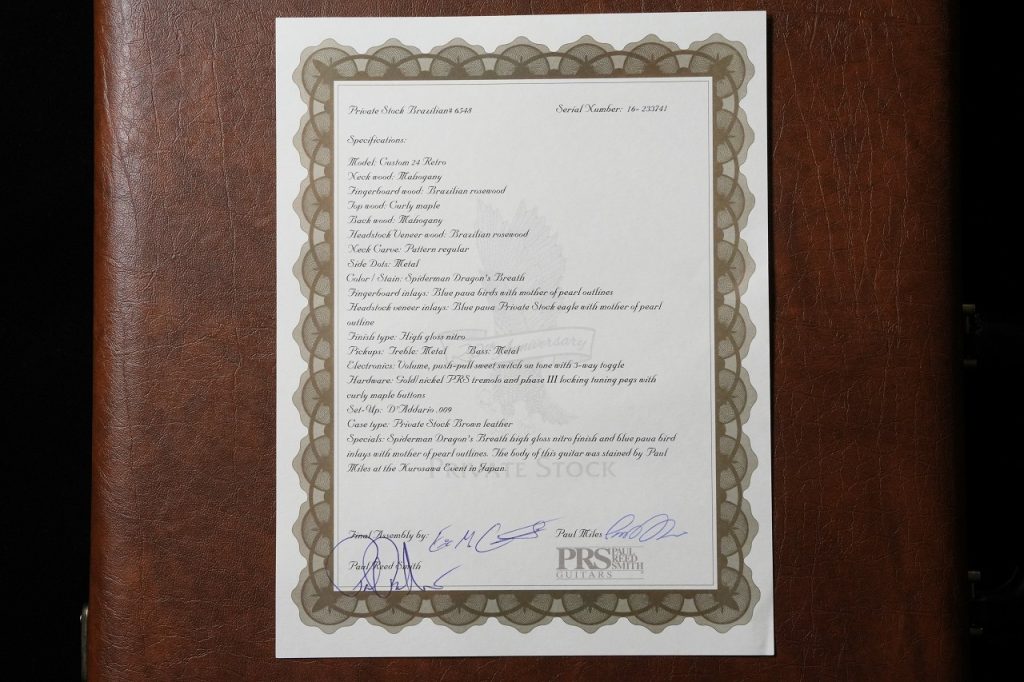 Private Stock Brazilian# 6548
Serial Number: 16- 233741
Specifications:
Model: Custom 24 Retro
Neck wood: Mahogany
Fingerboard wood: Brazilian rosewood
Top wood: Curly maple
Back wood: Mahogany
Headstock Veneer wood: Brazilian rosewood
Neck Carve: Pattern regular
Side Dots: Metal
Color / Stain: Spiderman Dragon's Breath
Fingerboard inlays: Blue paua birds with mother of pearl outlines
Headstock veneer inlays: Blue paua Private Stock eagle with mother of pearl
outline
Finish type: High gloss nitro
Pickups: Treble: Metal Bass: Metal
Electronics: Volume, push-pull sweet switch on tone with 3-way toggle
Hardware: Gold/nickel PRS tremolo and phase III locking tuning pegs with
curly maple buttons
Set-Up: D'Addario .009
Case type: Private Stock Brown leather
Specials: Spiderman Dragon's Breath high gloss nitro finish and blue paua bird
inlays with mother of pearl outlines. The body of this guitar was stained by Paul
Miles at the Kurosawa Event in Japan.
Private Stock
Final Assembly by:
Paul Miles
Paul Reed Smith
PRS PAUL REED SMITH
GUITARS